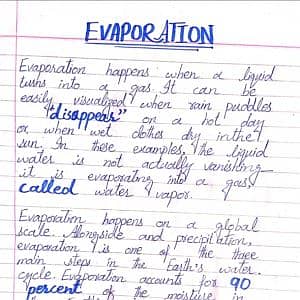 EVAPORATION
Evaporation happens when a liquid
turns into a gas. It can be
easily visualized when rain puddles
"disappear" on a hot day
or when wet clothes dry in the
sun. In these examples, the liquid
water is not actually vanishing
it is evaporating into a gas,
called water vapor.
Evaporation happens on a global
scale. Alongside and precipitation,
evaporation is one of the three
main steps in the Earth's water
cycle. Evaporation accounts for 90
percent of the moisture in